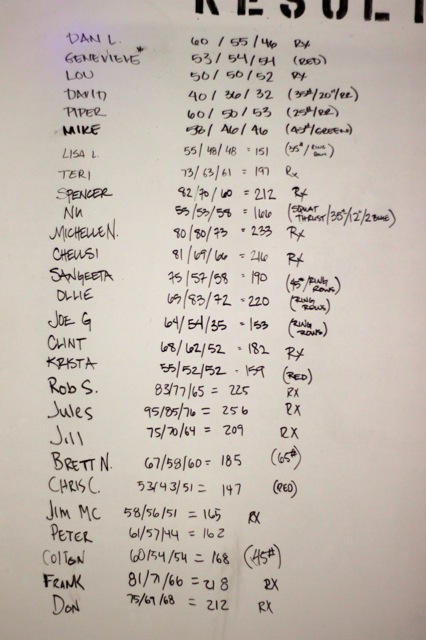 RESULT
DAN L. 60 / 55 / 46 RX
GENEVIEVE* 53 / 54 / 54 (RED)
LOU 50 / 50 / 52 RX
DAVID 40 / 36 / 32 (35#/20"/RR)
PIPER 60 / 50 / 53 (25#/RR)
MIKE 58/ 46 / 46 (45#/GREEN)
LISA L. 55/ 48/ 48 = 151 (35#/RING ROW)
TERI 73/63/61 = 197 Rx
SPENCER 82/70/60 = 212 Rx
55/53/58 = 166 (SQUAT THRUST/35#/12"/2 BLUE)
MICHELLE N. 80/80/73 = 233 Rx
CHELLSI 81/69/66 = 216 Rx
SANGEETA 75/57/58 = 190 (45#/RING ROWS)
OLLIE 65/83/72 = 220 (RING ROWS)
JOE G 64/54/35 = 153 (RING ROWS)
CLINT 68/62/52 = 182 RX
KRISTA 55/52/52 = 159 (RED)
ROB S. 83/77/65 = 225 RX
Jules 95/85/76 = 256 RX
Jill 75/70/64 = 209 RX
BRETT N. 67/58/60 = 185 (65#)
CHRIS C. 53/43/51 = 147 (RED)
JIM MC 58/56/51 = 165 RX
PETER 61/57/44 = 162
COLTON 60/54/54 = 168 (45#)
FRANK 81/71/66 = 218 RX
DON 75/69/68 = 212 RX